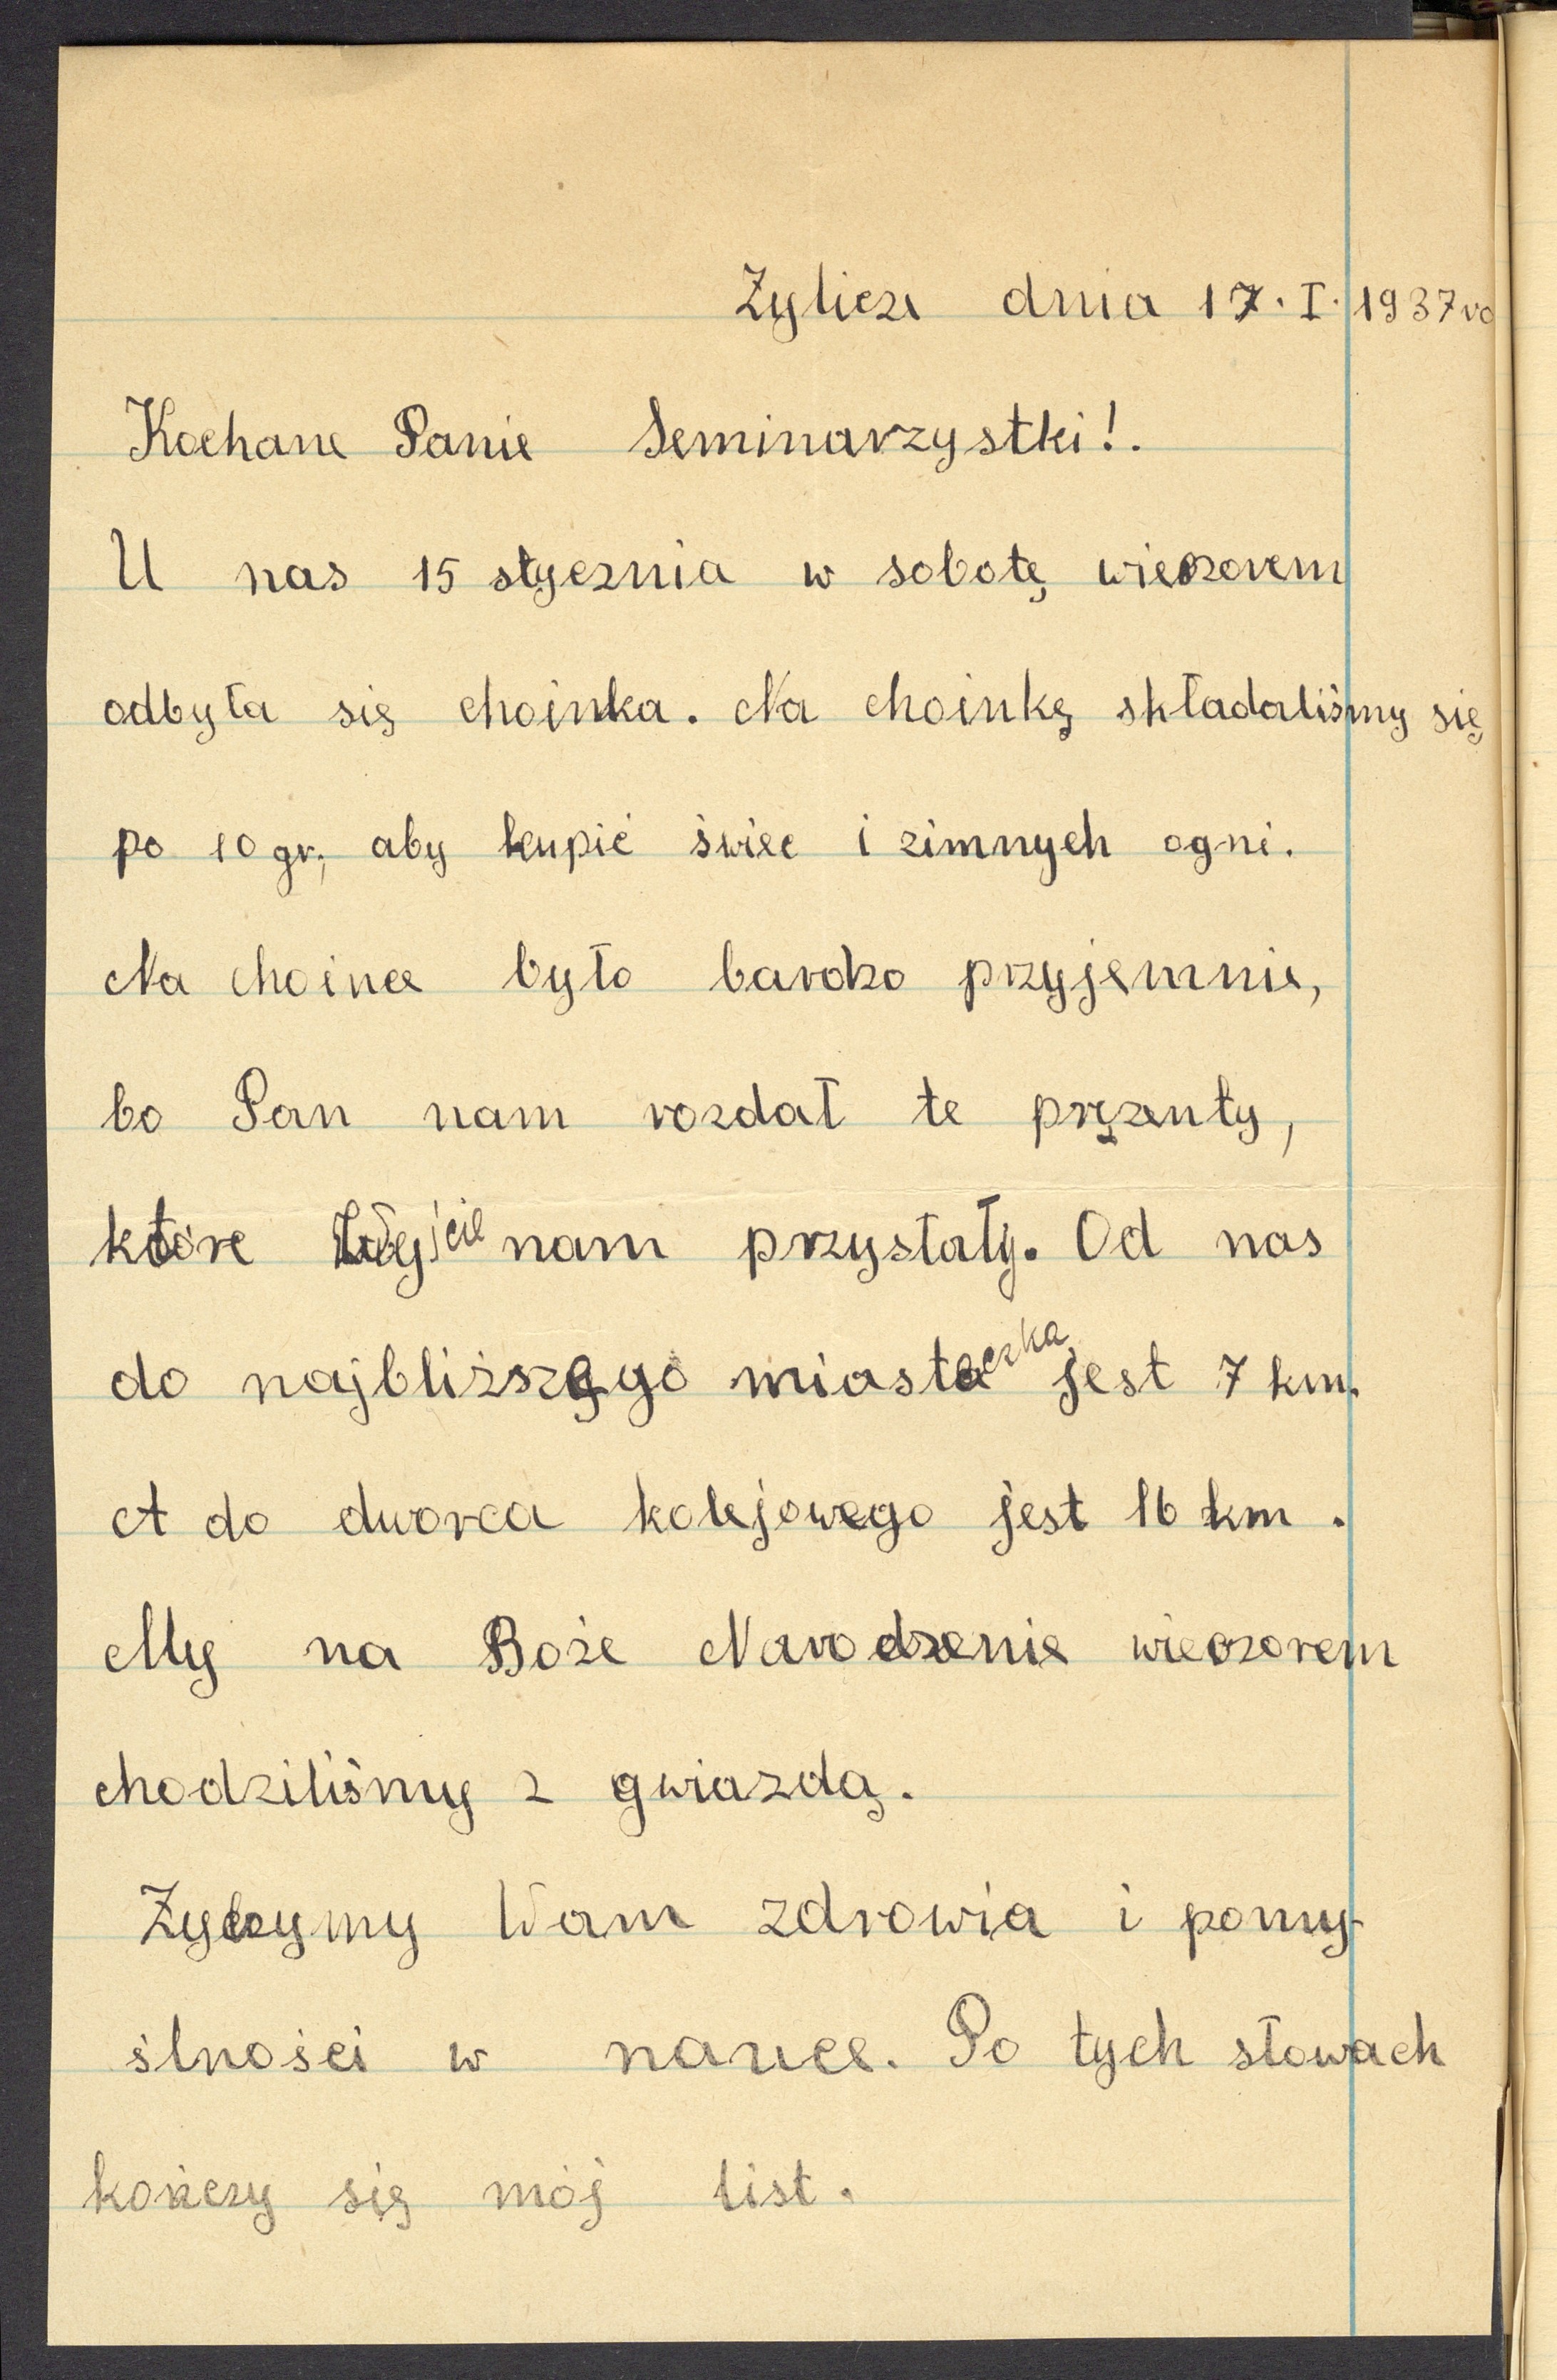 Żylicze dnia 17. I. 1937 ro
Kochane Panie Seminarzystki!.
U nas 15 stycznia w sobotę wieczorem
odbyła się choinka. Na choinkę składaliśmy się
po 10 gr, aby kupić świec i zimnych ogni.
Na choince było bardzo przyjemnie,
bo Pan nam rozdał te prezenty,
które nam przysłały. Od nas
do najbliższego miasteczka jest 7 km.
A do dworca kolejowego jest 16 km.
My na Boże Narodzenie wieczorem
chodziliśmy z gwiazdą.
Życzymy Wam zdrowia i pomy-
ślności w nauce. Po tych słowach
kończy się mój list.